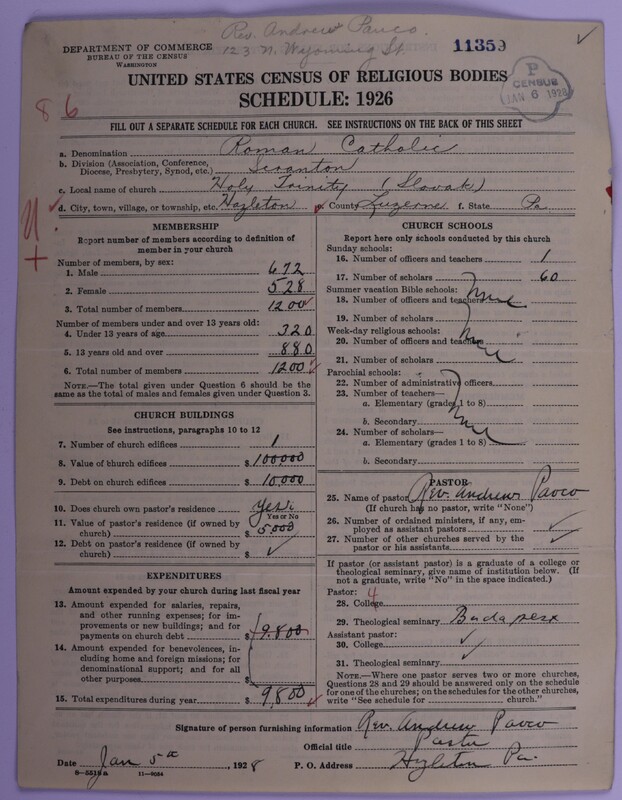 Rev. Andrew Pavco.
DEPARTMENT OF COMMERCE
BUREAU OF THE CENSUS
WASHINGTON
123 N. Wyoming St
11359
UNITED STATES CENSUS OF RELIGIOUS BODIES
SCHEDULE: 1926
P
CENSUS
JAN 6 1928
86
FILL OUT A SEPARATE SCHEDULE FOR EACH CHURCH. SEE INSTRUCTIONS ON THE BACK OF THIS SHEET
a. Denomination Roman Catholic
b. Division (Association, Conference, Diocese, Presbytery, Synod, etc.) Scranton
c. Local name of church Holy Trinity (Slovak)
d. City, town, village, or township, etc. Hazleton e. County Luzerne f. State Pa.
MEMBERSHIP
Report number of members according to definition of
member in your church
Number of members, by sex:
1. Male 672
2. Female 528
3. Total number of members 1200
Number of members under and over 13 years old:
4. Under 13 years of age 320
5. 13 years old and over 880
6. Total number of members 1200
NOTE.—The total given under Question 6 should be
same as the total of males and females given under Question 3.
CHURCH BUILDINGS
See instructions, paragraphs 10 to 12
7. Number of church edifices 1
8. Value of church edifices $100,000
9. Debt on church edifices $10,000
10. Does church own pastor's residence? Yes.
Yes or No
11. Value of pastor's residence (if owned by
church) $5,000
12. Debt on pastor's residence (if owned by
church) $
EXPENDITURES
Amount expended by church during last fiscal year
13. Amount expended for salaries, repairs,
and other running expenses; for im-
provements or new buildings; and for
payments on church debt $9,800
14. Amount expended for benevolences, in-
cluding home and foreign missions; for
denominational support; and for all
other purposes $
15. Total expenditures during year $9,800
CHURCH SCHOOLS
Report here only schools conducted by this church
Sunday schools:
16. Number of officers and teachers 1
17. Number of scholars 60
Summer vacation Bible schools:
18. Number of officers and teachers None
19. Number of scholars
Week-day religious schools:
20. Number of officers and teachers None
21. Number of scholars
Parochial schools:
22. Number of administrative officers
23. Number of teachers—
a. Elementary (grades 1 to 8) None
b. Secondary
24. Number of scholars—
a. Elementary (grades 1 to 8)
b. Secondary
PASTOR
25. Name of pastor Rev. Andrew Pavco
(If church has no pastor, write "None")
26. Number of ordained ministers, if any, em-
ployed as assistant pastors
27. Number of other churches served by the
pastor or his assistants
If pastor (or assistant pastor) is a graduate of a college or
theological seminary, give name of institution below. (If
not a graduate, write "No" in the space indicated.)
Pastor: 4
28. College
29. Theological seminary Budapest
Assistant pastor:
30. College
31. Theological seminary
NOTE.—Where one pastor serves two or more churches,
Questions 28 and 29 should be answered only on the schedule
for one of the churches; on the schedules for the other churches,
write "See schedule for church."
Signature of person furnishing information Rev. Andrew Pavco
Official title Pastor
Date Jan 5th, 1928 P. O. Address Hazleton Pa.
8—5518a 11—9054